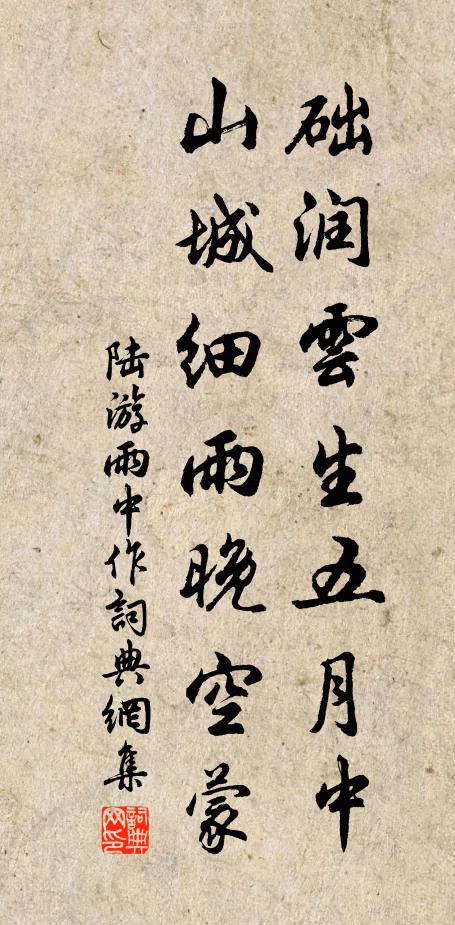 础润雲生五月中
山城细雨晚空蒙
陆游雨中作詞典網集
詞典网印